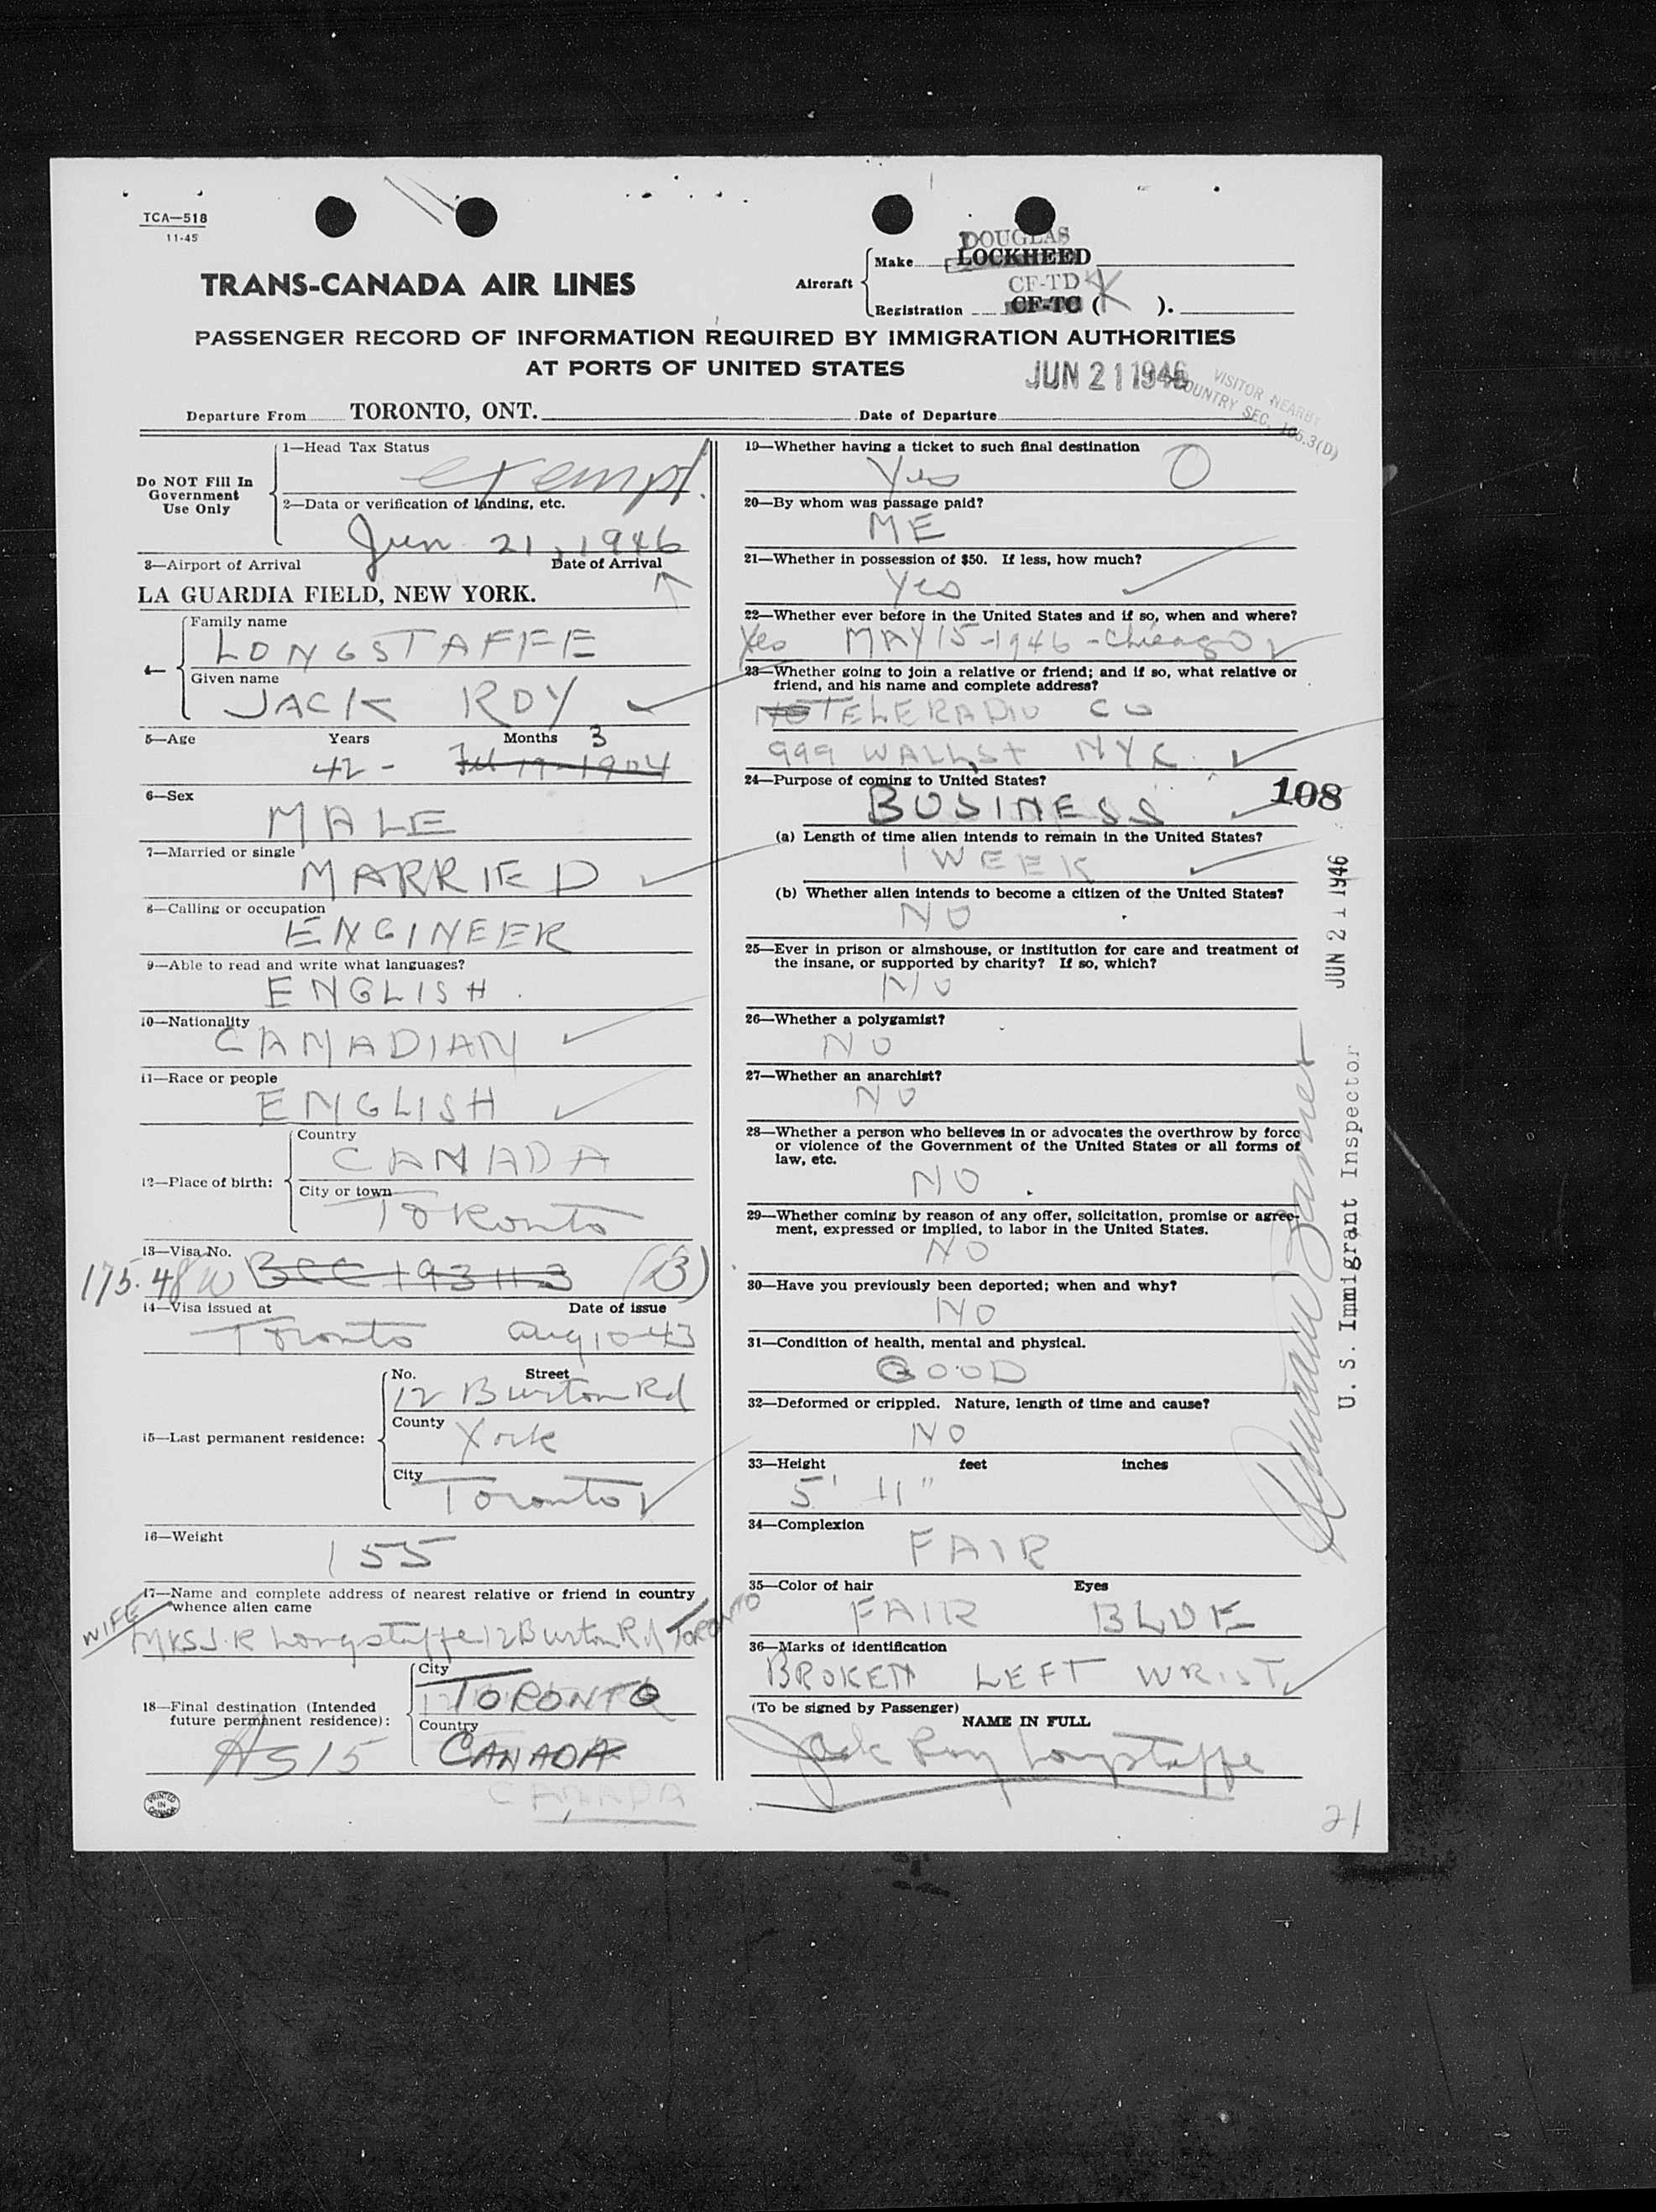 TCA—518
11-45
DOUGLAS
Aircraft
Make LOCKHEED
CF-TD K
Registration CF-TC ( ).
TRANS-CANADA AIR LINES
PASSENGER RECORD OF INFORMATION REQUIRED BY IMMIGRATION AUTHORITIES
AT PORTS OF UNITED STATES
JUN 21 1946
VISITOR NEARBY
COUNTRY SEC. 165.3(D)
Departure From TORONTO, ONT. Date of Departure
Do NOT Fill In
Government
Use Only
1—Head Tax Status
exempt.
2—Data or verification of landing, etc.
Jun 21, 1946
3—Airport of Arrival Date of Arrival
LA GUARDIA FIELD, NEW YORK.
4—
Family name
LONGSTAFFE
Given name
JACK ROY
5—Age Years Months 3
42 - Feb 19-1904
6—Sex
MALE
7—Married or single
MARRIED
8—Calling or occupation
ENGINEER
9—Able to read and write what languages?
ENGLISH.
10—Nationality
CANADIAN
11—Race or people
ENGLISH
12—Place of birth:
Country
CANADA
City or town
Toronto
13—Visa No.
175.48 W BCC 193113 (B)
14—Visa issued at Date of issue
Toronto Aug 10-43
15—Last permanent residence:
No. Street
12 Burton Rd
County
York
City
Toronto
16—Weight
155
17—Name and complete address of nearest relative or friend in country
whence alien came
WIFE
MRS J.R Longstaffe 12 Burton Rd TORONTO
18—Final destination (Intended
future permanent residence):
City
TORONTO
Country
CANADA
AS 15
CANADA
PRINTED
IN
CANADA
19—Whether having a ticket to such final destination
Yes O
20—By whom was passage paid?
ME
21—Whether in possession of $50. If less, how much?
Yes
22—Whether ever before in the United States and if so, when and where?
Yes MAY 15-1946-Chicago
23—Whether going to join a relative or friend; and if so, what relative or
friend, and his name and complete address?
NO TELERADIO CO
999 WALL St NYC
24—Purpose of coming to United States?
BUSINESS
108
(a) Length of time alien intends to remain in the United States?
1 WEEK
(b) Whether alien intends to become a citizen of the United States?
NO
25—Ever in prison or almshouse, or institution for care and treatment of
the insane, or supported by charity? If so, which?
NO
26—Whether a polygamist?
NO
27—Whether an anarchist?
NO
28—Whether a person who believes in or advocates the overthrow by force
or violence of the Government of the United States or all forms of
law, etc.
NO
29—Whether coming by reason of any offer, solicitation, promise or agree-
ment, expressed or implied, to labor in the United States.
NO
30—Have you previously been deported; when and why?
NO
31—Condition of health, mental and physical.
GOOD
32—Deformed or crippled. Nature, length of time and cause?
NO
33—Height feet inches
5' 11"
34—Complexion
FAIR
35—Color of hair Eyes
FAIR BLUE
36—Marks of identification
BROKEN LEFT WRIST
(To be signed by Passenger)
NAME IN FULL
Jack Roy Longstaffe
JUN 21 1946
U. S. Immigrant Inspector
21